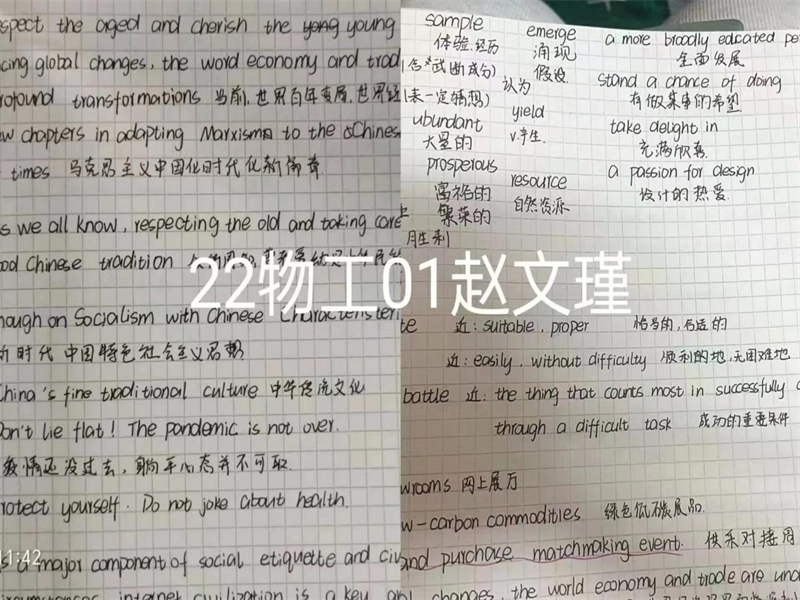 spect the aged and cherish the yong young
cing global changes, the word economy and trad
rofound transformations 当前,世界百年变局,世界经
w chapters in adapting Marxism to the Chines
times 马克思主义中国化时代化新篇章
s we all know, respecting the old and taking care
ood Chinese tradition
hough on Socialism with Chinese
新时代中国特色社会主义思想
China's fine traditional culture 中华传统文化
Don't lie flat! The pandemic is not over.
疫情还没过去,躺平心态并不可取.
rotect yourself. Do not joke about health.
11:42
s a major component of social etiquette and civ
internet civilization is a key
sample
体验.经历
(含"试断成分)
(表一定猜想)
ubundant
大量的
prosperous
富裕的
繁荣的
胜利
emerge
涌现
假设
认为
yield
v.产生.
resource
自然资源
a more broadly educated pe
全面发展
stand a chance of doing
有做某事的希望
take deught in
充满欣喜
a passion for design
设计的热爱.
22物工01赵文瑾
te 近: suitable, proper 恰当的,合适的
近: easily, without difficulty 顺利的地,无困难地
battle 近: the thing that counts most in successfully
through a difficult task 成功的重要条件
wrooms 网上展厅
w-carbon commodities 绿色低碳展品.
and purchase matchmaking event. 供采对接用
changes, the world economy and trade are und